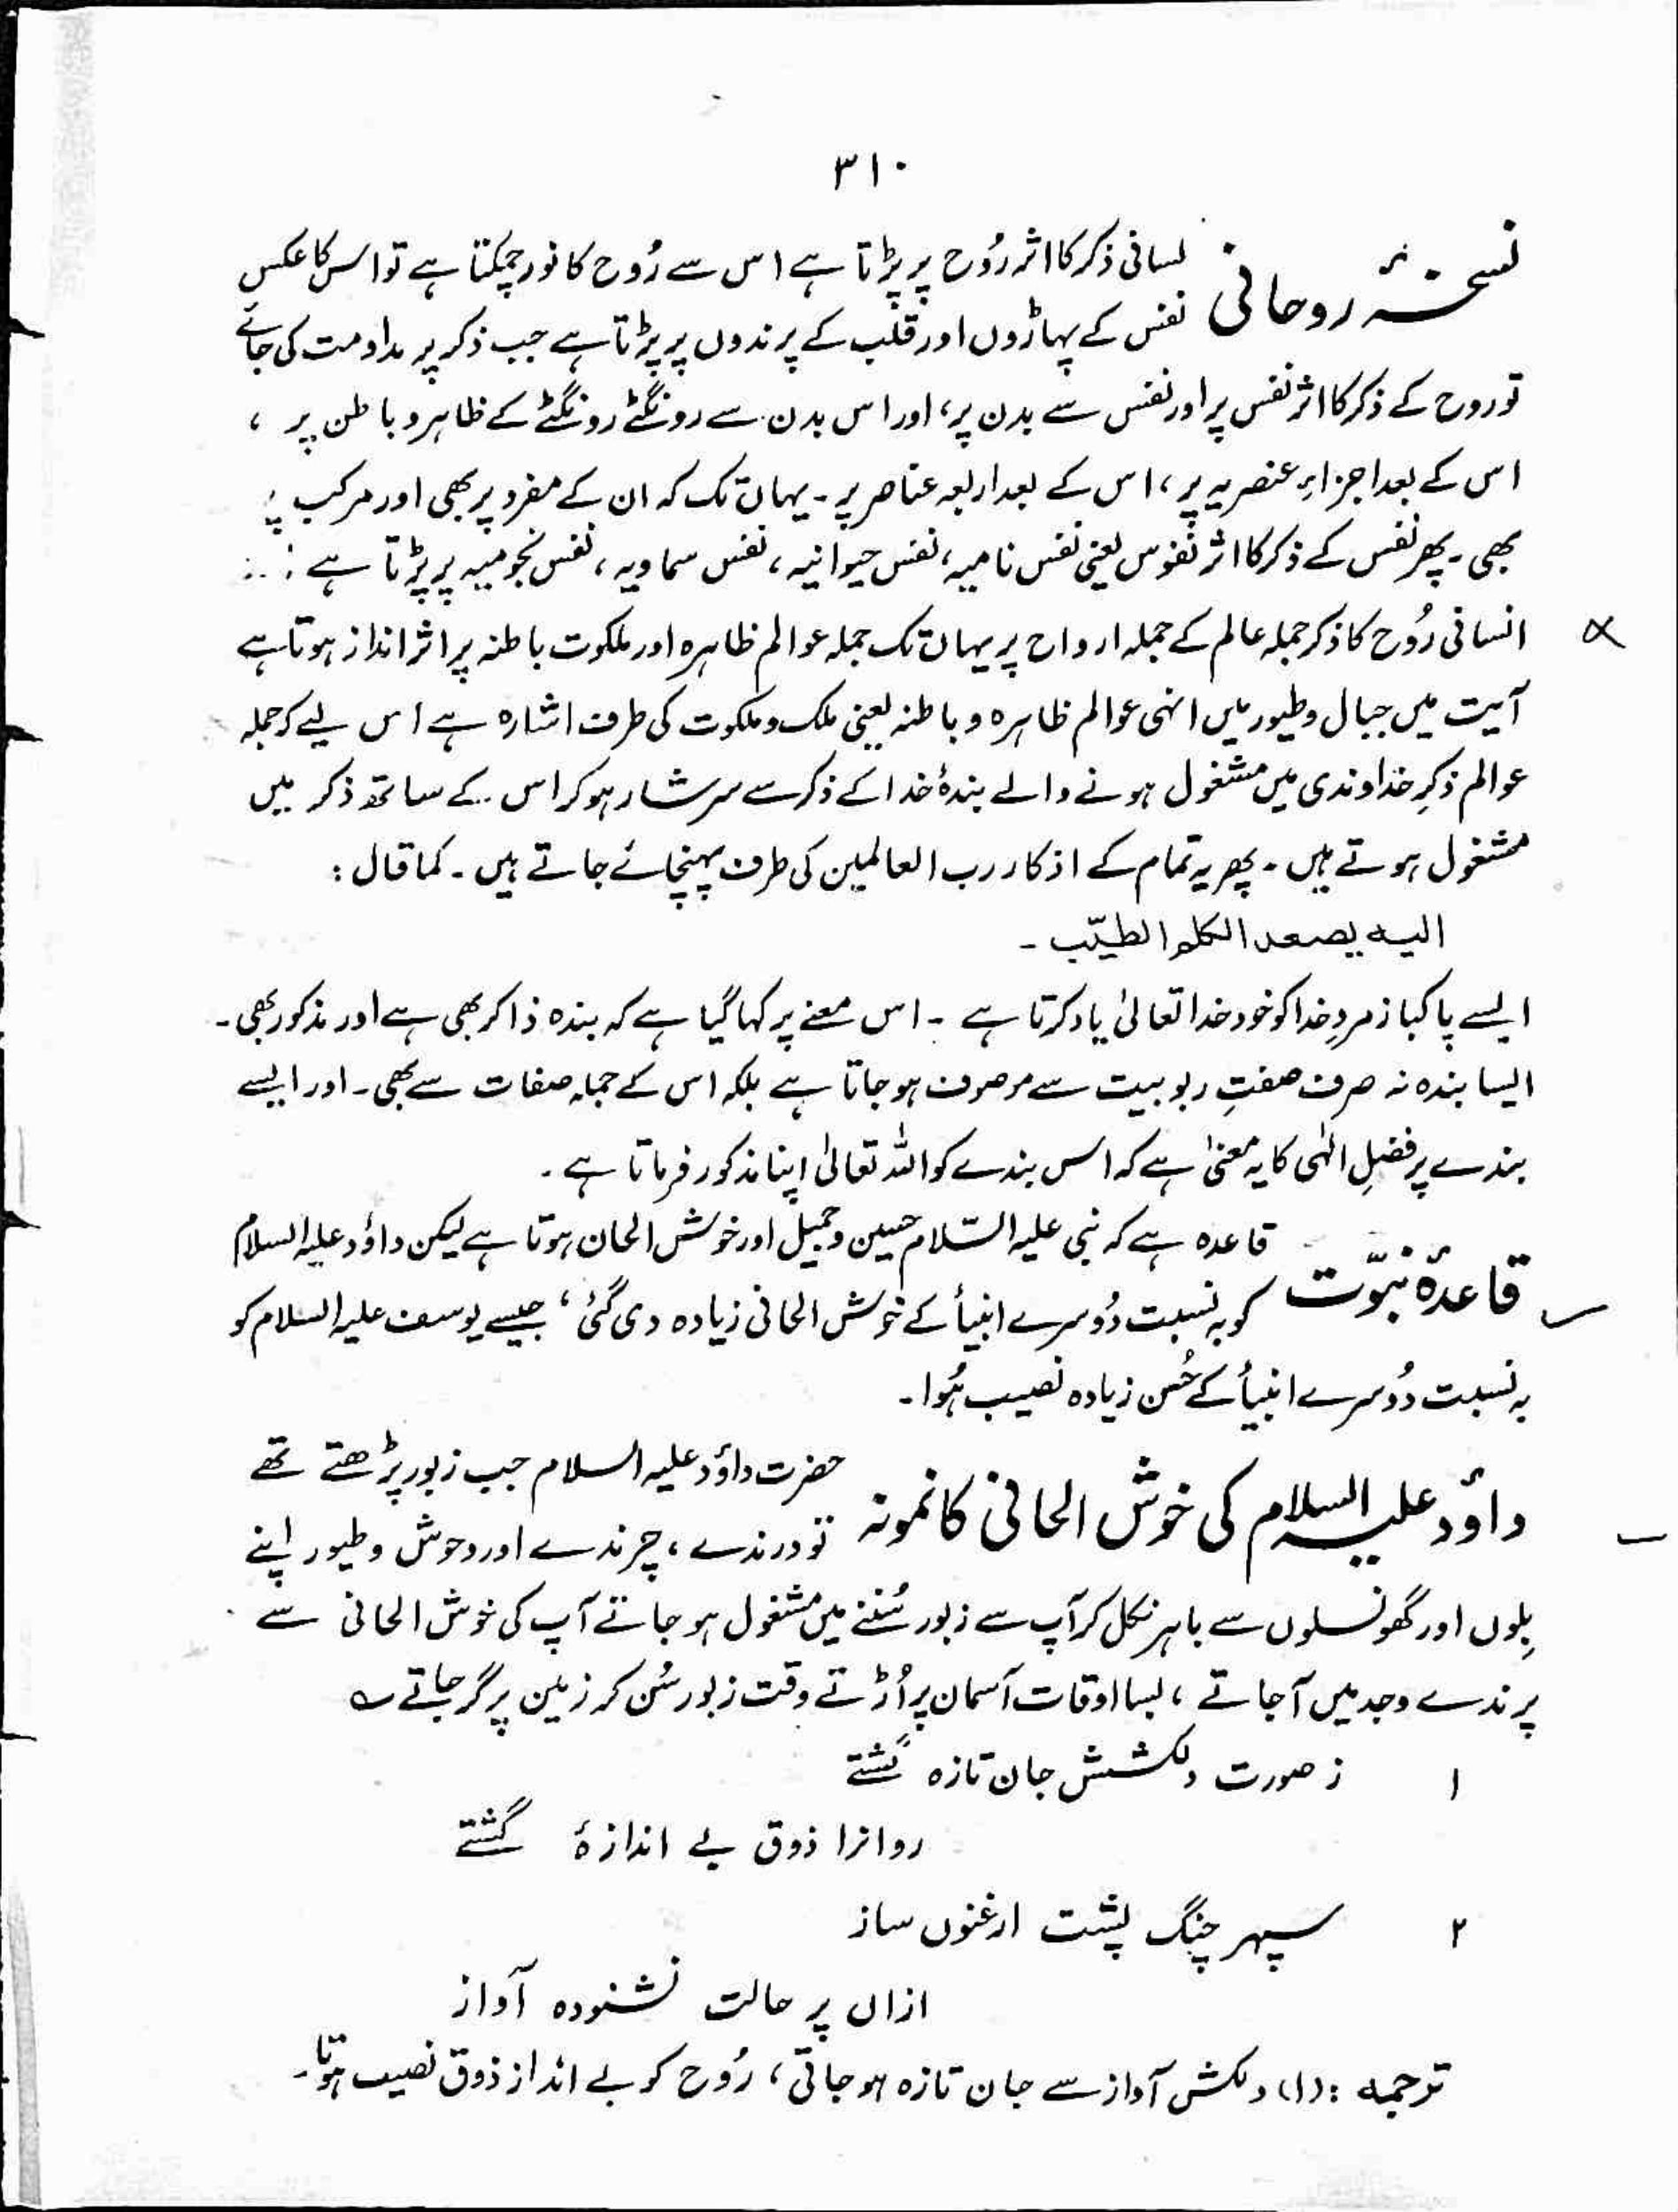 ۳۱۰
نسخۂ روحانی لسانی ذکر کا اثر رُوح پر پڑتا ہے اس سے رُوح کا نور چمکتا ہے تو اس کا عکس
نفس کے پہاڑوں اور قلب کے پرندوں پر پڑتا ہے جب ذکر پر مداومت کی جائے
تو روح کے ذکر کا اثر نفس پر اور نفس سے بدن پر، اور اس بدن سے رونگٹے رونگٹے کے ظاہر و باطن پر ،
اس کے بعد اجزاءِ عنصریہ پر، اس کے بعد اربعہ عناصر پر ۔ یہاں تک کہ ان کے مفرد پر بھی اور مرکب پر
بھی ۔ پھر نفس کے ذکر کا اثر نفوس یعنی نفس نامیہ، نفس حیوانیہ ، نفس سماویہ ، نفس نجومیہ پر پڑتا ہے :
انسانی رُوح کا ذکر جملہ عالم کے جملہ ارواح پر یہاں تک جملہ عوالم ظاہرہ اور ملکوت باطنہ پر اثر انداز ہوتا ہے
آیت میں جبال و طیور میں انہی عوالم ظاہرہ و باطنہ یعنی ملک و ملکوت کی طرف اشارہ ہے اس لیے کہ جملہ
عوالم ذکرِ خداوندی میں مشغول ہونے والے بندۂ خدا کے ذکر سے سرشار ہو کر اس کے ساتھ ذکر میں
مشغول ہوتے ہیں ۔ پھر یہ تمام کے اذکار رب العالمین کی طرف پہنچائے جاتے ہیں ۔ کما قال :
الیہ یصعد الکلم الطیّب ۔
ایسے پاکباز مردِ خدا کو خود خدا تعالیٰ یاد کرتا ہے ۔ اس معنے پر کہا گیا ہے کہ بندہ ذاکر بھی ہے اور مذکور بھی ۔
ایسا بندہ نہ صرف صفتِ ربوبیت سے موصوف ہو جاتا ہے بلکہ اس کے جملہ صفات سے بھی ۔ اور ایسے
بندے پر فضلِ الٰہی کا یہ معنیٰ ہے کہ اس بندے کو اللہ تعالیٰ اپنا مذکور فرماتا ہے ۔
قاعدۂ نبوّت قاعدہ ہے کہ نبی علیہ السّلام حسین و جمیل اور خوش الحان ہوتا ہے لیکن داؤد علیہ السلام
کو بہ نسبت دُوسرے انبیأ کے خوش الحانی زیادہ دی گئی ، جیسے یوسف علیہ السلام کو
بہ نسبت دُوسرے انبیأ کے حُسن زیادہ نصیب ہُوا ۔
داؤد علیہ السلام کی خوش الحانی کا نمونہ حضرت داؤد علیہ السلام جب زبور پڑھتے تھے
تو درندے ، چرندے اور وحوش و طیور اپنے
بِلوں اور گھونسلوں سے باہر نکل کر آپ سے زبور سُننے میں مشغول ہو جاتے آپ کی خوش الحانی سے
پرندے وجد میں آجاتے ، بسا اوقات آسمان پر اُڑتے وقت زبور سُن کر زمین پر گر جاتے ؎
۱ ز صورت دلکشش جان تازہ گشتے
روانرا ذوق بے اندازۂ گشتے
۲ سپہر چنگ پشت ارغنوں ساز
ازاں پر حالت نشنودہ آواز
ترجمہ : (۱) دلکش آواز سے جان تازہ ہو جاتی ، رُوح کو بے انداز ذوق نصیب ہوتا ۔